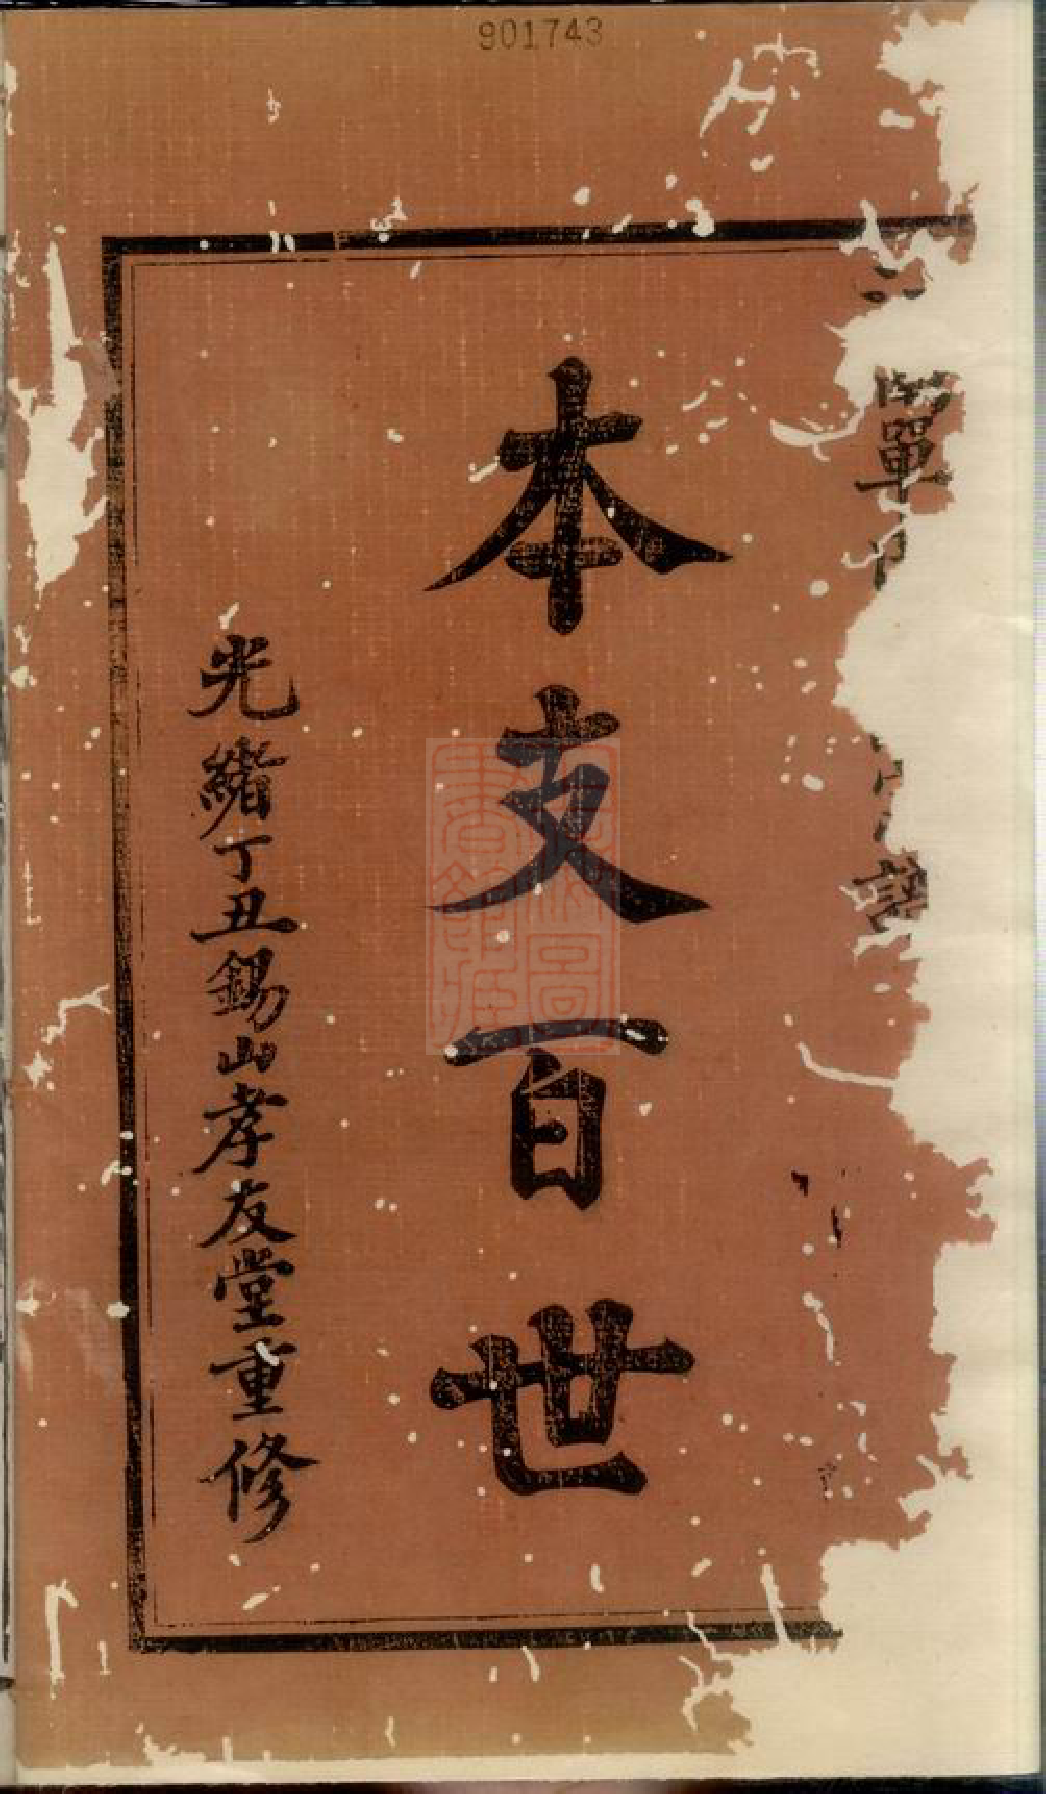 901743
譜
本支百世
光緒丁丑錫山孝友堂重修